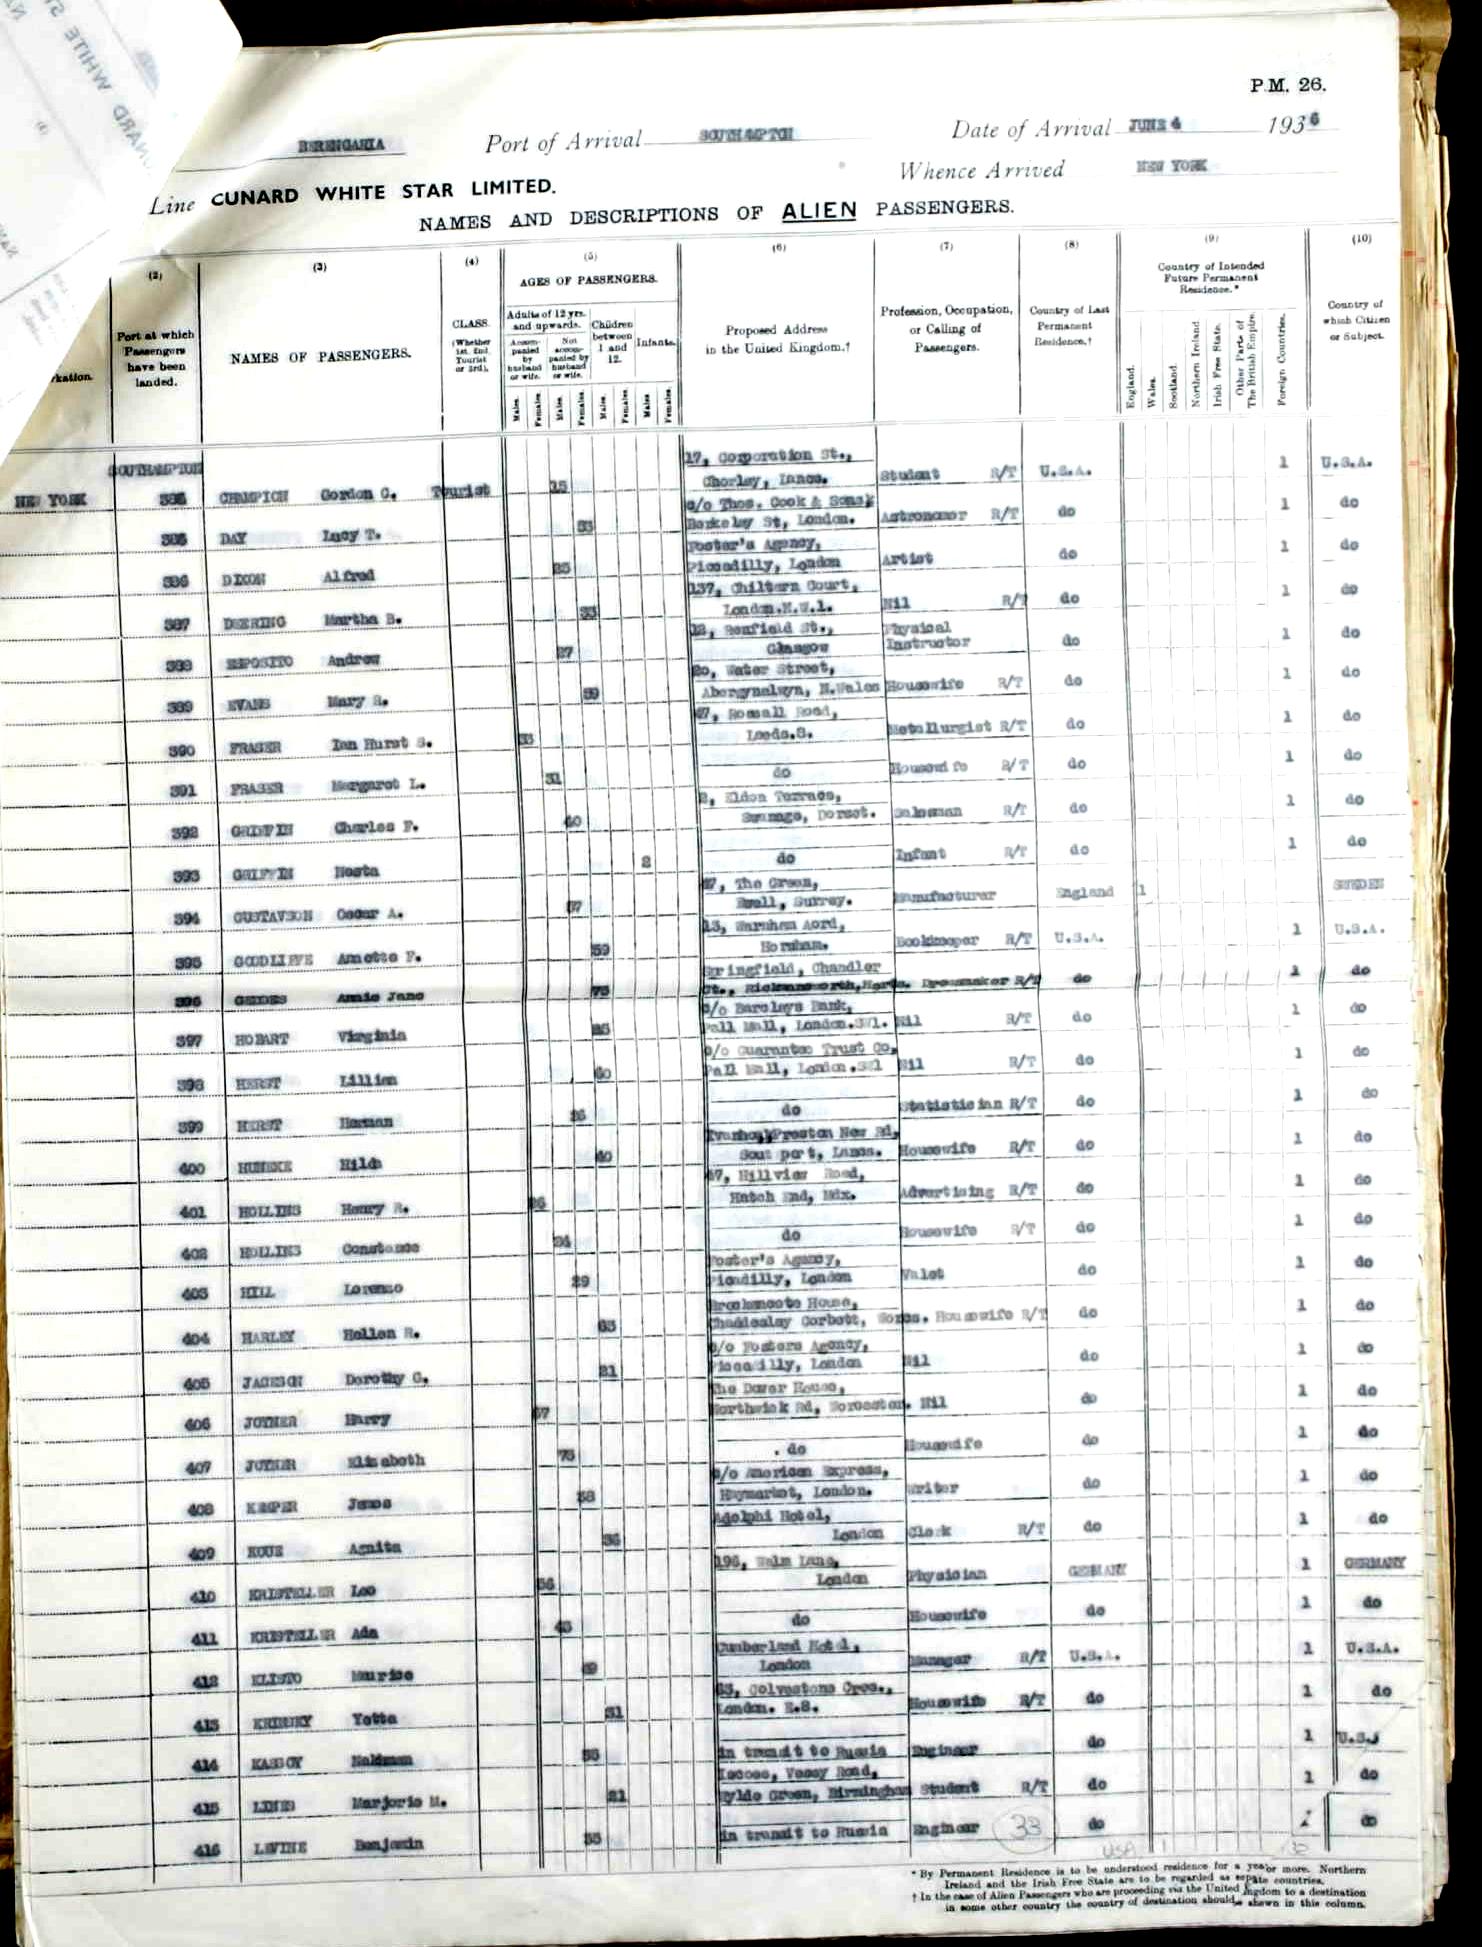 P.M. 26.
BERENGARIA Port of Arrival SOUTHAMPTON Date of Arrival JUNE 4 1936
Whence Arrived NEW YORK
Line CUNARD WHITE STAR LIMITED.
NAMES AND DESCRIPTIONS OF ALIEN PASSENGERS.
(2) (3) (4) (5) (6) (7) (8) (9) (10)
rkation.
Port at which Passengers have been landed.
NAMES OF PASSENGERS.
CLASS. (Whether 1st, 2nd, Tourist or 3rd).
AGES OF PASSENGERS.
Adults of 12 yrs. and upwards.
Accompanied by husband or wife.
Not accompanied by husband or wife.
Children between 1 and 12.
Infants.
Males. Females. Males. Females. Males. Females. Males Females.
Proposed Address in the United Kingdom.†
Profession, Occupation, or Calling of Passengers.
Country of Last Permanent Residence.†
Country of Intended Future Permanent Residence.*
England. Wales. Scotland. Northern Ireland Irish Free State. Other Parts of The British Empire. Foreign Countries.
Country of which Citizen or Subject.
SOUTHAMPTON
NEW YORK CHAMPION Gordon C. Tourist 15 17, Corporation St., Chorley, Lancs. Student R/T U.S.A. 1 U.S.A.
385 DAY Lucy T. c/o Thos. Cook & Sons, Berkeley St, London. Astronomer R/T do 1 do
386 DIXON Alfred Foster's Agency, Piccadilly, London Artist do 1 do
387 DEERING Martha B. 33 137, Chiltern Court, London.N.W.1. Nil R/T do 1 do
388 ESPOSITO Andrew 27 12, Renfield St., Glasgow Physical Instructor do 1 do
389 EVANS Mary 59 20, Water Street, Abergynolwyn, N.Wales Housewife R/T do 1 do
390 FRASER Ian Hurst S. Road, Leeds.8. Metallurgist R/T do 1 do
391 FRASER Margaret L. 31 do Housewife R/T do 1 do
392 GRIFFIN Charles F. 40 Eldon Terrace, Swanage, Dorset. Salesman R/T do 1 do
393 GRIFFIN Nesta 2 do Infant R/T do 1 do
394 GUSTAVSON Oscar A. The Green, Ewell, Surrey. Manufacturer England 1 SWEDEN
395 GOODLIFFE Annette F. 59 13, Warnham Aord, Horsham. Bookkeeper R/T U.S.A. 1 U.S.A.
396 GEDDES Annie Jane 75 Springfield, Chandler St., Rickmansworth,Herts. Dressmaker R/T do 1 do
397 HOBART Virginia c/o Barclays Bank, Pall Mall, London.SW1. Nil R/T do 1 do
398 HERST Lillian 60 c/o Guarantee Trust Co, Pall Mall, London.SW1 Nil R/T do 1 do
399 HERST Herman do Statistician R/T do 1 do
400 Hilda 40 Preston New Rd, Southport, Lancs. Housewife R/T do 1 do
401 HOLLINS Henry R. 47, Hillview Road, Hatch End, Mdx. Advertising R/T do 1 do
402 HOLLINS Constance do Housewife R/T do 1 do
403 HILL Lorenzo 29 Foster's Agency, Picadilly, London Valet do 1 do
404 HARLEY Hellen R. House, Chaddesley Corbett, Worcs. Housewife R/T do 1 do
405 JACKSON Dorothy C. 21 c/o Fosters Agency, Piccadilly, London Nil do 1 do
406 JOYNER Harry The Dower House, Northwick Rd, Worcester. Nil do 1 do
407 JOYNER Elizabeth 75 do Housewife do 1 do
408 KEMPER James c/o American Express, Haymarket, London. Writer do 1 do
409 Agnita Adelphi Hotel, London Clerk R/T do 1 do
410 KRISTELLER Leo 196, Walm Lane, London Physician GERMANY 1 GERMANY
411 KRISTELLER Ada do Housewife do 1 do
412 Maurice Cumberland Hotel, London Manager R/T U.S.A. 1 U.S.A.
413 Yetta 51 Colvestone Cres., London. E.8. Housewife R/T do 1 do
414 KASSOY in transit to Russia Engineer do 1 U.S.A
415 LINES Marjorie M. 21 Vesey Road, Wylde Green, Birmingham Student R/T do 1 do
416 LEVINE Benjamin in transit to Russia Engineer 33 do do
* By Permanent Residence is to be understood residence for a year or more. Northern
Ireland and the Irish Free State are to be regarded as countries.
† In the case of Alien Passengers who are proceeding via the United to a destination
in some other country the country of destination should shewn in this column.